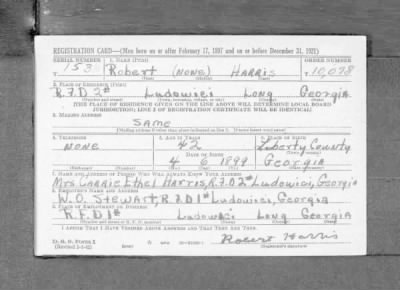 REGISTRATION CARD—(Men born on or after February 17, 1897 and on or before December 31, 1921)
SERIAL NUMBER 1. NAME (Print) ORDER NUMBER
T 153 Robert (NONE) HARRIS T10,078
(First) (Middle) (Last)
2. PLACE OF RESIDENCE (Print)
R.F.D 2# Ludowici Long Georgia
(Number and street) (Town, township, village, or city) (County) (State)
[THE PLACE OF RESIDENCE GIVEN ON THE LINE ABOVE WILL DETERMINE LOCAL BOARD
JURISDICTION; LINE 2 OF REGISTRATION CERTIFICATE WILL BE IDENTICAL]
3. MAILING ADDRESS
SAME
[Mailing address if other than place indicated on line 2. If same insert word same]
4. TELEPHONE 5. AGE IN YEARS 6. PLACE OF BIRTH
NONE 42 Liberty County
DATE OF BIRTH
4 6 1899 Georgia
(Mo.) (Day) (Yr.)
7. NAME AND ADDRESS OF PERSON WHO WILL ALWAYS KNOW YOUR ADDRESS
Mrs CARRIE Ethel HARRIS, R.F.D 2# Ludowici, Georgia
8. EMPLOYER'S NAME AND ADDRESS
W. O. Stewart, R.F.D 1# Ludowici, Georgia
9. PLACE OF EMPLOYMENT OR BUSINESS
R.F.D 1# Ludowici Long Georgia
I AFFIRM THAT I HAVE VERIFIED ABOVE ANSWERS AND THAT THEY ARE TRUE.
D. S. S. Form 1
Robert Harris
(Registrant's signature)